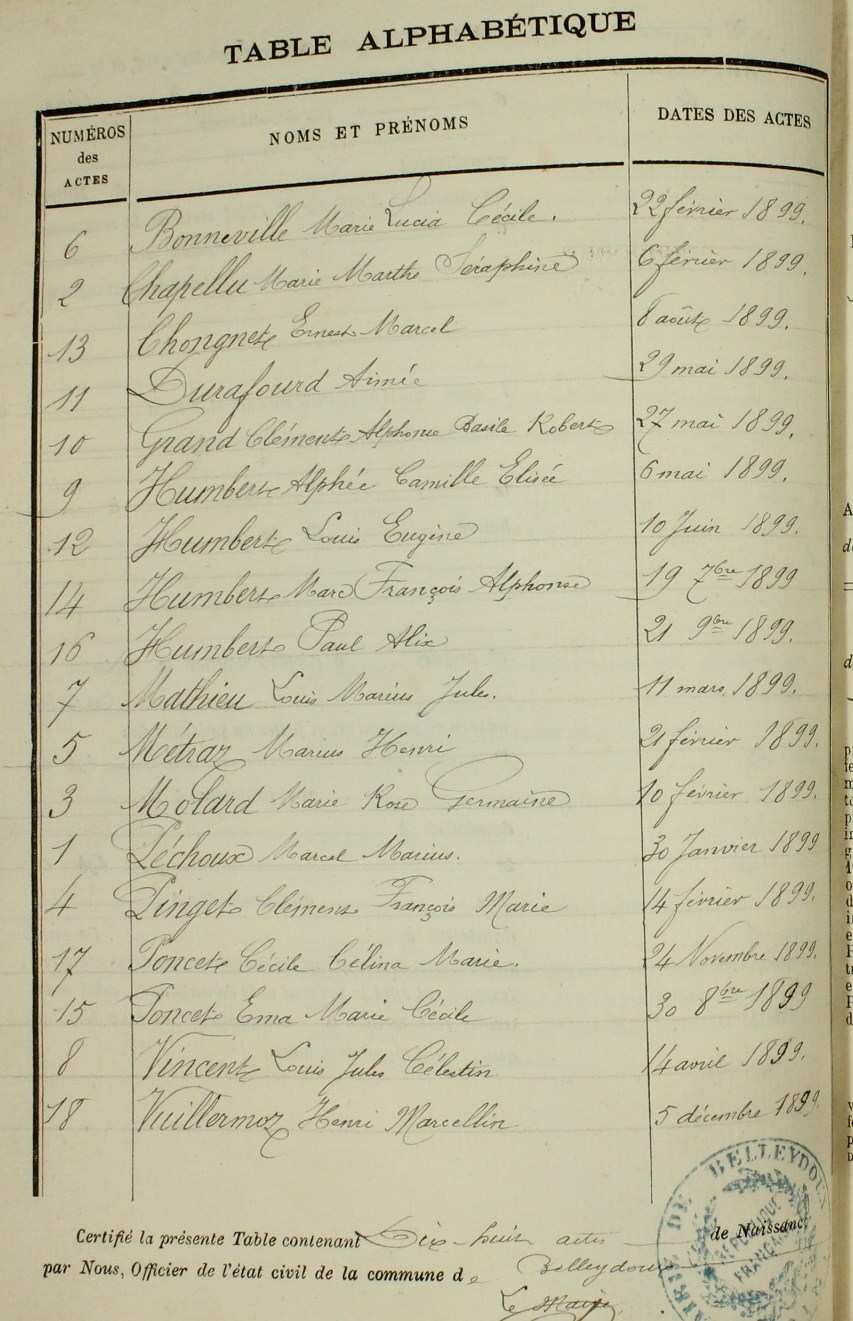 TABLE ALPHABÉTIQUE
NUMÉROS des ACTES NOMS ET PRÉNOMS DATES DES ACTES
6 Bonneville Marie Lucia Cécile. 22 février 1899.
2 Chapellu Marie Marthe Séraphine 6 février 1899.
13 Chongnet Ernest Marcel 8 août 1899.
11 Durafourd Aimée 29 mai 1899.
10 Grand Clément Alphonse Basile Robert 27 mai 1899.
9 Humbert Alphée Camille Elisée 6 mai 1899.
12 Humbert Louis Eugène 10 Juin 1899.
14 Humbert Marc François Alphonse 19 7bre 1899
16 Humbert Paul Alix 21 9bre 1899.
7 Mathieu Louis Marius Jules. 11 mars 1899.
5 Métraz Marius Henri 21 février 1899.
3 Molard Marie Rose Germaine 10 février 1899.
1 Péchoux Marcel Marius. 30 Janvier 1899
4 Pinget Clément François Marie 14 février 1899.
17 Poncet Cécile Célina Marie. 24 Novembre 1899.
15 Poncet Ema Marie Cécile 30 8bre 1899
8 Vincent Louis Jules Célestin 14 avril 1899.
18 Vuillermoz Henri Marcellin 5 décembre 1899.
Certifié la présente Table contenant Dix-huit actes de Naissance
par Nous, Officier de l'état civil de la commune de Belleydoux
Le Maire
MAIRIE DE BELLEYDOUX
RÉPUBLIQUE FRANÇAISE